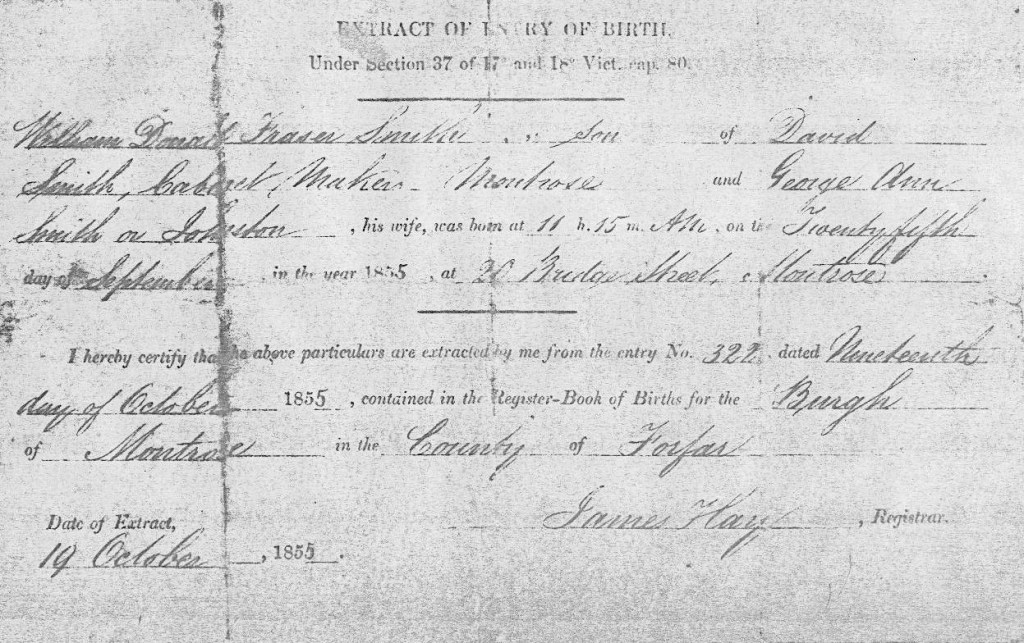 EXTRACT OF ENTRY OF BIRTH,
Under Section 37 of 17° and 18° Vict. cap. 80.
William Donald Fraser Smith, ,, Son of David
Smith, Cabinet Maker Montrose and George Ann
Smith or Johnston, his wife, was born at 11 h. 15 m. AM, on the Twenty fifth
day of September in the year 1855, at 20 Bridge Street, Montrose
I hereby certify that the above particulars are extracted by me from the entry No. 322, dated Nineteenth
day of October 1855, contained in the Register-Book of Births for the Burgh
of Montrose in the County of Forfar
James Hay, Registrar.
Date of Extract,
19 October, 1855.